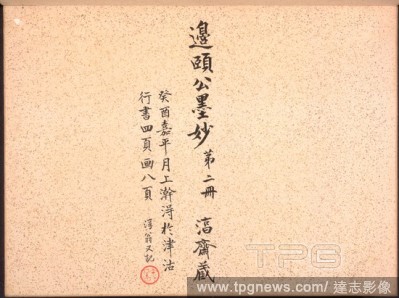 邊頤公墨妙 第二冊 㵎齋藏
癸酉嘉平月上澣得於津沽
行書四頁画八頁
翁又記
TPG
www.tpgnews.com/達志影像